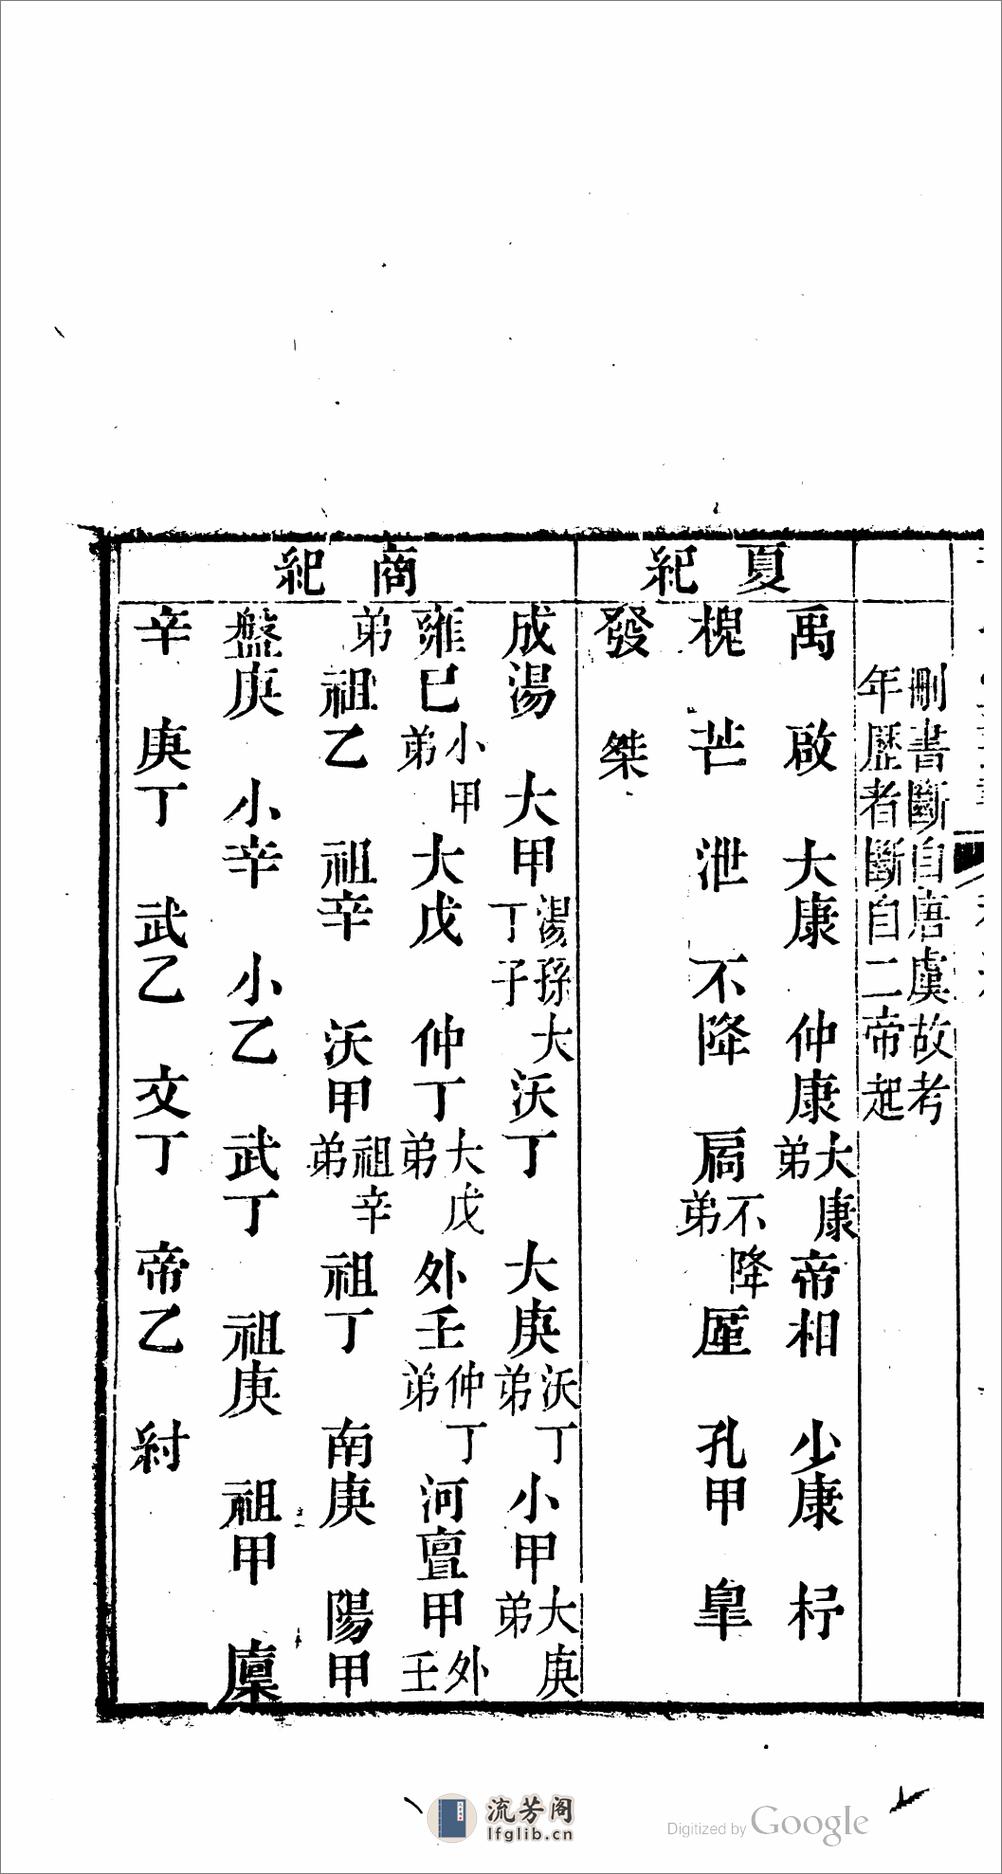 刪書斷自唐虞故考
年歷者斷自二帝起
夏紀
禹 啟 大康 仲康大康弟 帝相 少康 杼
槐 芒 泄 不降 扃不降弟 厪 孔甲 皐
發 桀
商紀
成湯 大甲湯孫大丁子 沃丁 大庚沃丁弟 小甲大庚弟
雍巳小甲弟 大戊 仲丁大戊弟 外壬仲丁弟 河亶甲外壬
弟 祖乙 祖辛 沃甲祖辛弟 祖丁 南庚 陽甲
盤庚 小辛 小乙 武丁 祖庚 祖甲 廩
辛 庚丁 武乙 文丁 帝乙 紂
流芳阁
lfglib.cn
Digitized by Google